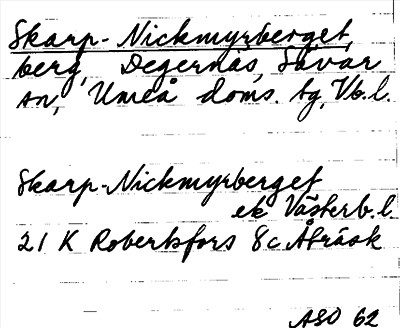 Skarp-Nickmyrberget,
berg, Degernäs, Sävar
sn, Umeå doms. tg, Vb.l.
Skarp-Nickmyrberget
ek Västerb.l.
21 K Robertsfors 8c Åkräsk
ASO 62